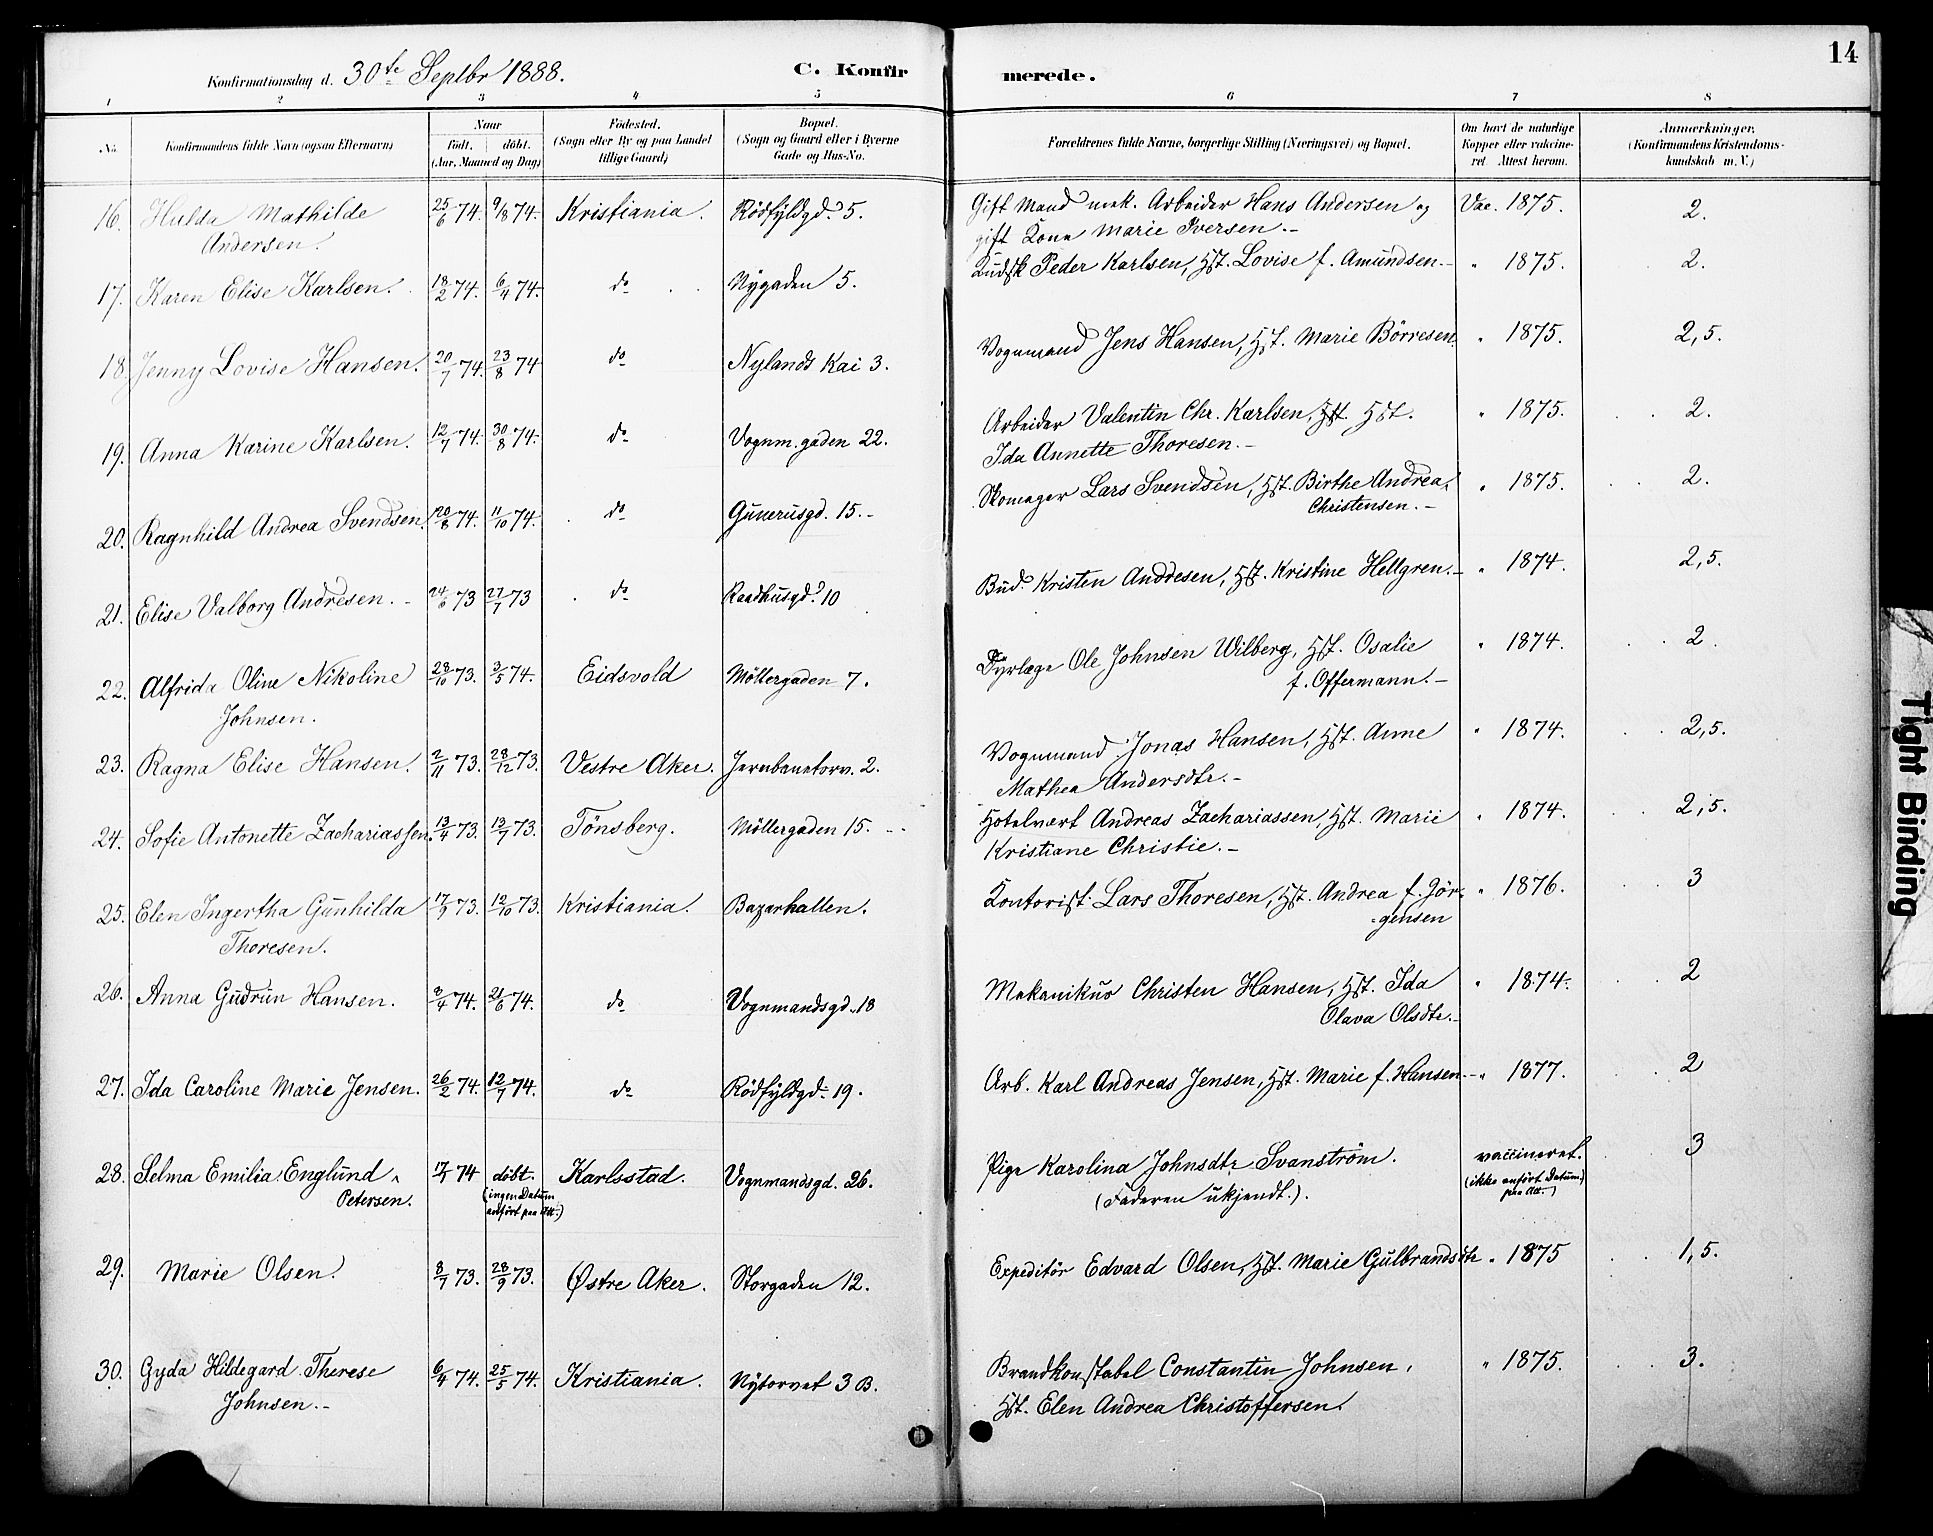 14
Konfirmationsdag d. 30te Septbr 1888. C. Konfirmerede.
1 2 3 4 5 6 7 8
No. Konfirmandens fulde Navn (ogsaa Efternavn) Naar født. døbt. (Aar, Maaned og Dag) Fødested. (Sogn eller By og paa Landet tillige Gaard) Bopæl. (Sogn og Gaard eller i Byerne Gade og Hus-No. Forældrenes fulde Navne, borgerlige Stilling (Næringsvei) og Bopæl. Om havt de naturlige Kopper eller vaccineret. Attest herom. Anmærkninger. (Konfirmandens Kristendomskundskab m. V.)
16. Hulda Mathilde 25/6 74. 9/8 74. Kristiania. Rödfyldgd. 5. Gift Mand mek. Arbeider Hans Andersen og Vac. 1875. 2.
Andersen. gift Kone Marie Iversen.-
17. Karen Elise Karlsen. 18/2 74. 6/4 74. do Nygaden 5. Kudsk Peder Karlsen, Hst. Lovise f. Amundsen.- " 1875. 2.
18. Jenny Lovise Hansen. 20/7 74. 23/8 74 do Nylands Kai 3. Vognmand Jens Hansen, Hst. Marie Börresen. " 1875. 2,5.
19. Anna Karine Karlsen. 12/7 74. 30/8 74. do Vognm.gaden 22. Arbeider Valentin Chr. Karlsen, Hst. Hst. " 1875. 2.
Ida Annette Thoresen.-
20. Ragnhild Andrea Svendsen. 20/8 74. 11/10 74. do Gunerusgd. 15.- Skomager Lars Svendsen, Hst. Birthe Andrea " 1875. 2.
Christensen.-
21. Elise Valborg Andresen.- 24/6 73 27/7 73 do Raadhusgd. 10 Bud Kristen Andresen, Hst. Kristine Hellgren.- " 1874. 2,5.
22. Alfrida Oline Nikoline 28/10 73. 3/5 74. Eidsvold Möllergaden 7. Dyrlæge Ole Johnsen Wilberg, Hst. Osalie " 1874. 2.
Johnsen. f. Offermann.-
23. Ragna Elise Hansen. 2/11 73. 28/12 73. Vestre Aker. Jernbanetorv. 2. Vognmand Jonas Hansen, Hst. Anne " 1874. 2,5.
Mathea Andersdtr.-
24. Sofie Antonette Zachariassen. 13/4 73. 13/7 73. Tönsberg. Möllergaden 15. Hotelvært Andreas Zachariassen, Hst. Marie " 1874. 2,5.
Kristiane Christie.-
25. Elen Ingertha Gunhilda 17/9 73. 12/10 73. Kristiania. Bazarhallen. Kontorist Lars Thoresen, Hst. Andrea f. Jör- " 1876. 3
Thoresen. gensen
26. Anna Gudrun Hansen. 3/4 74. 21/6 74. do Vognmandsgd. 18 Mekanikus Christen Hansen, Hst. Ida " 1874. 2
Olava Olsdtr.-
27. Ida Caroline Marie Jensen. 26/2 74. 12/7 74. do Rödfyldgd. 19. Arb. Karl Andreas Jensen, Hst. Marie f. Hansen.- " 1877. 2
28. Selma Emilia Englund 17/1 74 döbt. Karlsstad. Vognmandsgd. 26. Pige Karolina Johnsdtr Svanström. vaccineret. 3
Petersen. (ingen Datum anfört paa Att.) (Faderen ukjendt.). (ikke anfört Datum paa Att.)
29. Marie Olsen. 8/7 73. 28/9 73. Østre Aker. Storgaden 12. Expeditör Edvard Olsen, Hst. Marie Gulbrandsdtr " 1875 1,5.
30. Gyda Hildegard Therese 6/4 74. 25/5 74. Kristiania. Nytorvet 3 B. Brandkonstabel Constantin Johnsen, " 1875. 3.
Johnsen.- Hst. Elen Andrea Christoffersen.
Tight Binding